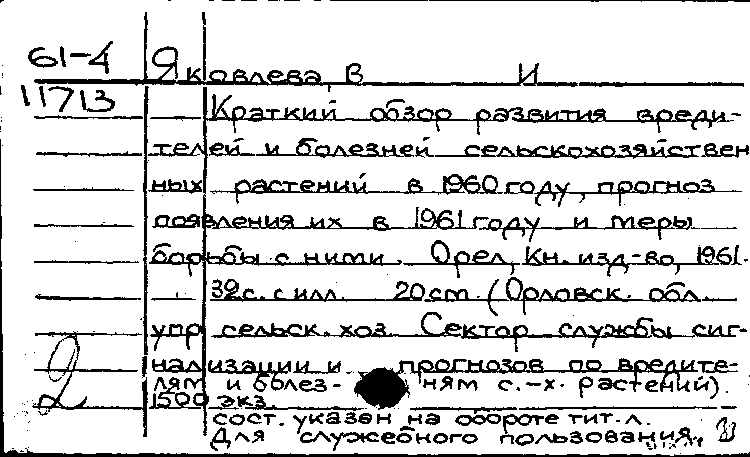 61-4 Яковлева, В И
11713 Краткий обзор развития вреди-
телей и болезней сельскохозяйствен
ных растений в 1960 году, прогноз
появления их в 1961 году и меры
борьбы с ними. Орел, Кн. изд-во, 1961.
32с. с илл. 20см. (Орловск. обл.
упр сельск. хоз. Сектор службы сиг-
нализации и прогнозов по вредите-
лям и болез- ням с.-х. растений).
2 1500 экз.
сост. указан на обороте тит. л.
Для служебного пользования.